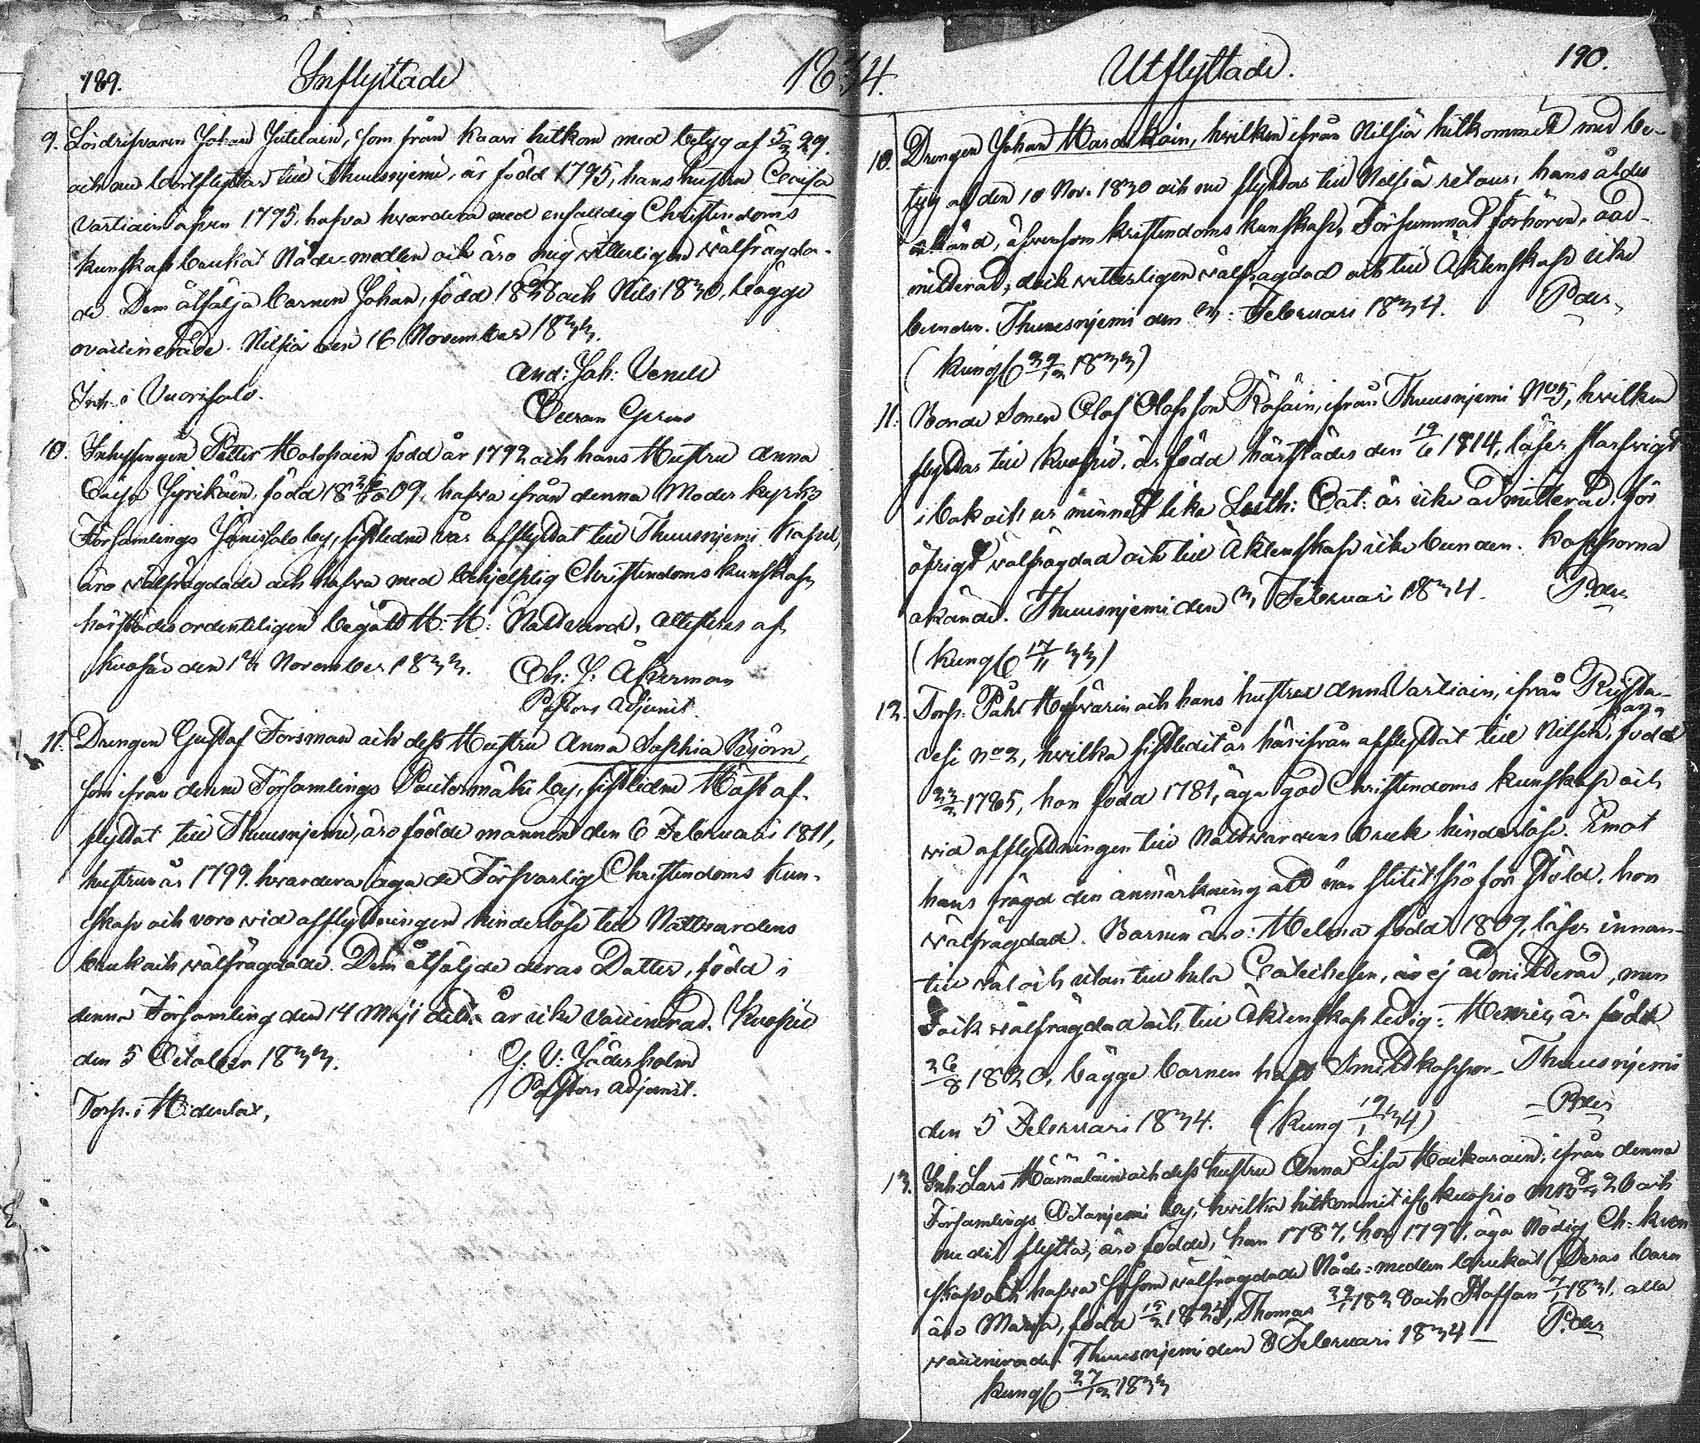 189. Inflyttade 1834.
9. Lösdrifvaren Johan Jutilain, som från Kaavi hitkom med betyg af 5/3 29.
och nu bortflyttar till Thuusnjemi, är född 1795, hans hustru Caisa
Vartiain äfven 1795, hafva hvardera med enfaldig Christendoms
kunskap brukat Nåde-medlen och äro mig vitterligen välfrägda-
de. Dem åtfölja barnen Johan, född 1828 och Nils 1830, bägge
vaccinerade. Nilsiä den 16 November 1833.
And: Joh:
Inh. i Vuorisalo.
10. Inhysingen Petter Malossain född år 1792 och hans Hustru Anna
Caisa Jyrikäin, född 18 09, hafva ifrån denna Moder kyrko
Församlings Jänissalo by, sistledne vår afflyttat till Thuusnjemi Kapell,
äro välfrägdade och hafva med behjelplig Christendoms kunskap,
härstädes ordenteligen begått H: H: Nattvard, attesteras af,
Kuopio den 12 November 1833. Joh: J: Åkerman
Pastors Adjunct.
11. Drengen Gustaf Forsman och dess Hustru Anna Sophia Björn,
som ifrån denne Församlings Puutosmäki by, sistledne Höst af-
flyttat till Thuusnjemi, äro födde mannen den 6 Februari 1811,
hustrun år 1799. hvardera äga de Försvarlig Christendoms kun-
skap och voro vid afflyttningen hinderlöse till Nattvardens
bruk och välfrägdade. Dem åtföljde deras Dotter, född i
denna Församling den 14 Maji detta år icke vaccinerad. Kuopio
den 5 October 1833. G: V: Söderholm
Pastors Adjunct.
Torp. i Hidenlax,
Utflyttade. 190.
10. Drengen Johan Hardikain, hvilken ifrån Nilsiä hitkommit med be-
tyg af den 10 Nov. 1830 och nu flyttar till Nilsiä retour, hans ålder
okänd, äfvensom kristendoms kunskap, Försummat förhören, oad-
mitterad, dock vitterligen välfrägdad och till Äktenskap icke
bunden. Thuusnjemi den 3: Februari 1834. P.des
(kungs 29/12 1833)
11. Bonde Sonen Olof Olofsson Räsäin, ifrån Thuusnjemi No 5, hvilken
flyttar till Kuopio, är född härstädes den 19/6 1814, läser försvarligt
i bok och ur minnet lika Luth: Cat: är icke admitterad, för
öfrigt välfrägdad och till Äktenskap icke bunden. Kopporna
okände. Thuusnjemi den 3 Februari 1834. P.des
(kungs 17/11 33)
12. Torp. Påhl Hyvärin och hans hustru Anna Vartiain, ifrån
vesi No 2, hvilka sistledit år härifrån afflyttat till Nilsiä, född
23/2 1785, hon född 1781, äga god Christendoms kunskap och
vid afflyttningen till Nattvardens bruk hinderlöse. Emot
hans frägd den anmärkning att han slitit spö för stöld. hon
välfrägdad. Barnen äro: Helena född 1809, läser innan-
till väl och utan till hela Catechesen, är ej admitterad, men
dock välfrägdad och till Äktenskap ledig. Henric, är född
26/8 1820, bägge barnen haft Smittkoppor. Thuusnjemi
den 5 Februari 1834. (kung 19/1 34) P.des
13. Inh. Lars Hämäläin och dess hustru Anna Lisa Hoikarain, ifrån denna
Församlings Ollanjemi by, hvilka hitkommit if. Kuopio 26 och
nu dit flytta, äro födde, han 1787, hon 1797, äga Nödig Ch: kun
skap och hafva såsom välfrägdade Nåde-medlen brukat. Deras barn
äro Maria, född 15/2 1825, Thomas 22/1 1828 och Staffan 7/1 1831, alla
vaccinerade. Thuusnjemi den 8 Februari 1834 P.des
kungs 27/12 1833